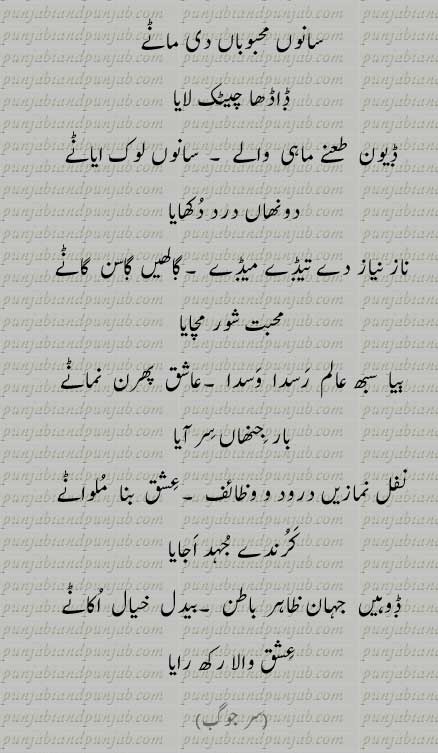 سانوں محبوباں دی مانݨے
ڈاڈھا چیٹک لایا
ݙیون طعنے ماہی والے ۔ سانوں لوک ایاݨے
دونھاں درد دُکھایا
ناز نیاز دے تیݙے میݙے ۔ ڳالھیں ڳاسن ڳاݨے
محبت شور مچایا
ٻیا سبھ عالم رَسدا وَسدا ۔ عاشق پھرن نماݨے
بار جنھاں سِر آیا
نفل نمازیں درود و وظائف ۔ عِشق بنا مُلواݨے
کَرُندے جُہد اَجایا
ݙوہیں جہان ظاہر باطن ۔ بیدل خیال اُکاݨے
عِشق والا رکھ رایا
(سر جوگ)